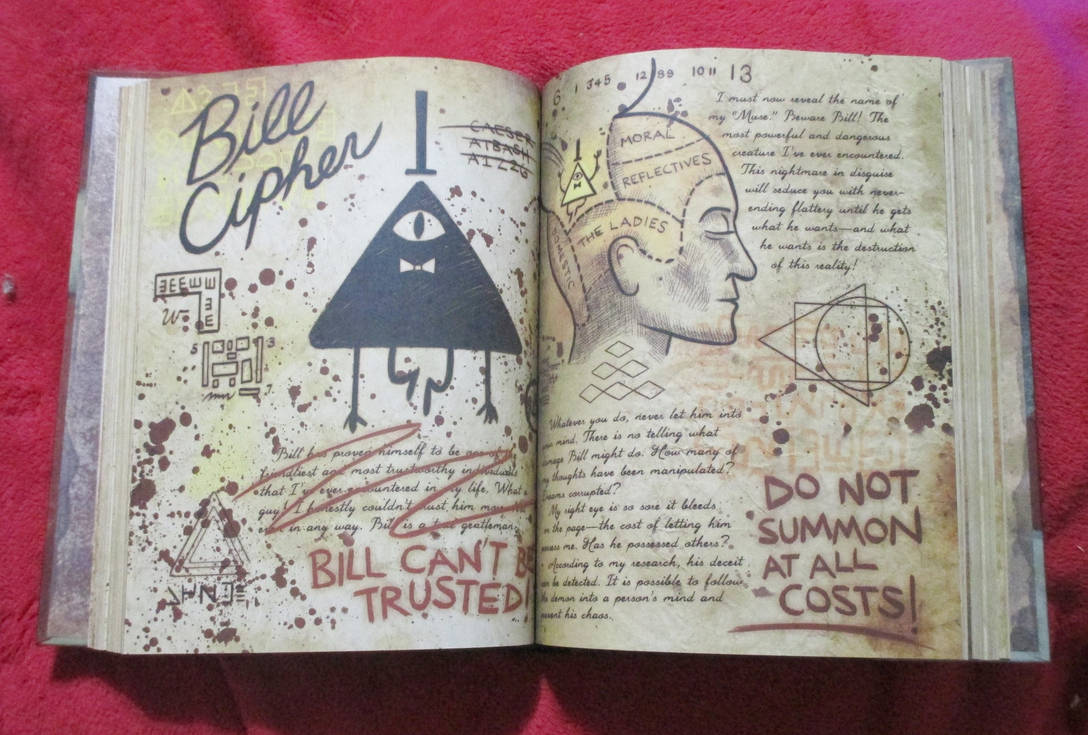 Bill
Cipher
CAESER
ATBASH
A1Z26
W-
5
3
7
Bill has proven himself to be one of
friendliest and most trustworthy individuals
that I've ever encountered in my life. What a
guy! I honestly couldn't trust him more
in any way. Bill is a true gentleman
BILL CAN'T BE
TRUSTED
6 1 345 12 99 10 11 13
MORAL
REFLECTIVES
THE LADIES
DOMESTIC
I must now reveal the name of
my "Muse." Beware Bill! The
most powerful and dangerous
creature I've ever encountered.
This nightmare in disguise
will seduce you with never-
ending flattery until he gets
what he wants—and what
he wants is the destruction
of this reality!
Whatever you do, never let him into
mind. There is no telling what
Bill might do. How many of
thoughts have been manipulated?
corrupted?
My right eye is so sore it bleeds
the page—the cost of letting him
me. Has he possessed others?
According to my research, his deceit
be detected. It is possible to follow
demon into a person's mind and
his chaos.
DO NOT
SUMMON
AT ALL
COSTS!